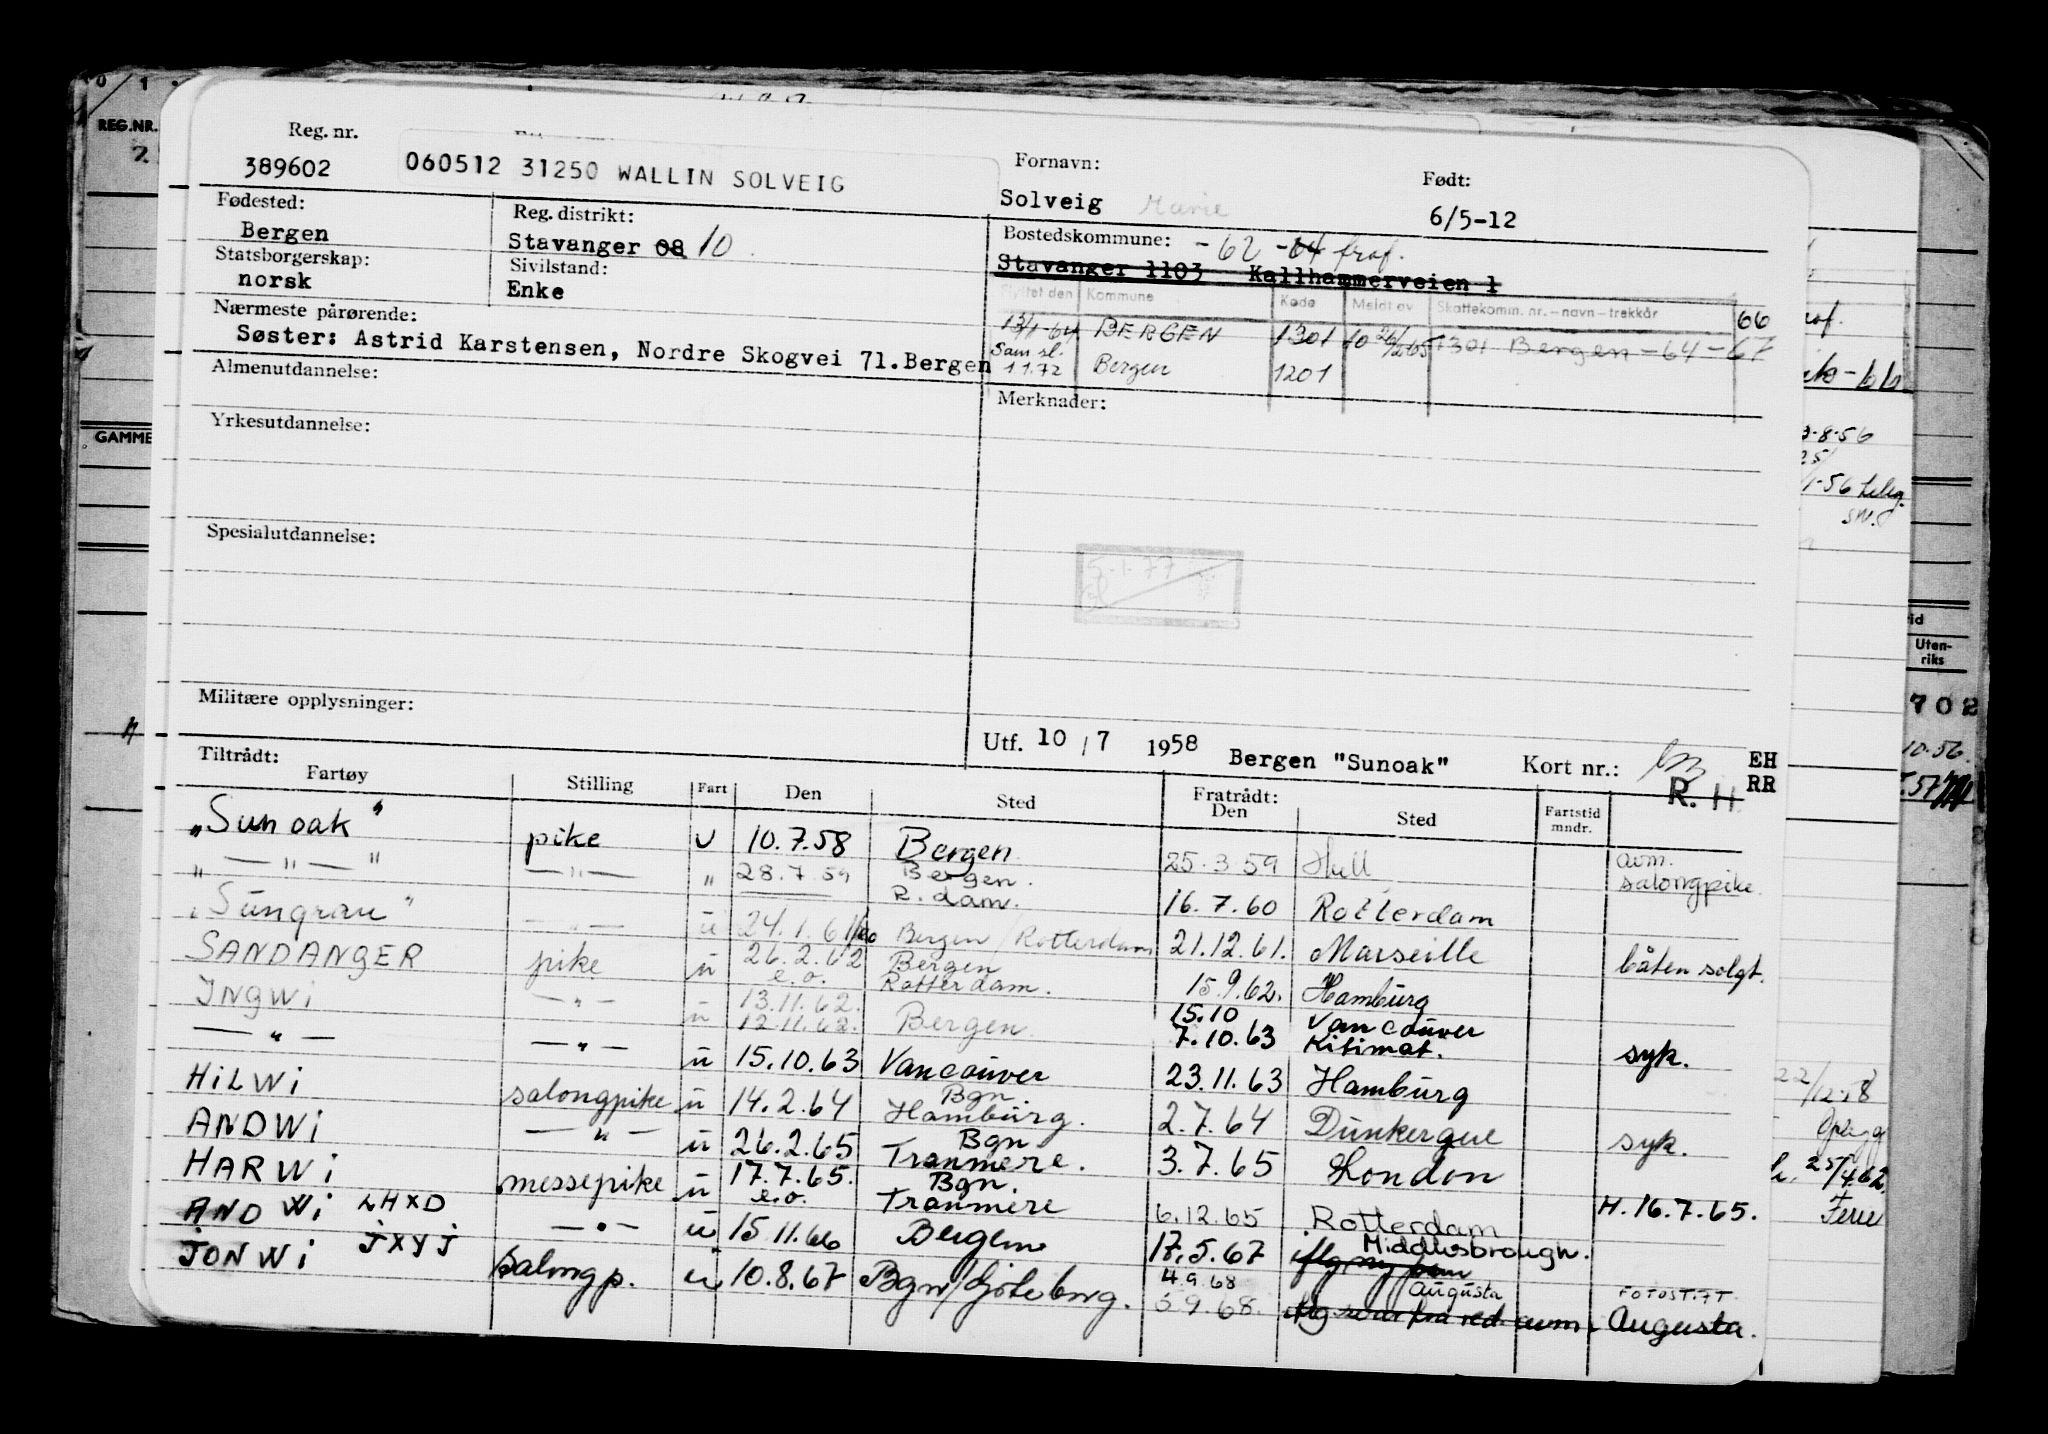 Reg. nr.
389602
060512 31250 WALLIN SOLVEIG
Fornavn:
Solveig Marie
Født:
6/5-12
Fødested:
Bergen
Reg. distrikt:
Stavanger 08 10
Bostedskommune: -62 -64 fraf.
Stavanger 1103 Kallhammerveien 1
Statsborgerskap:
norsk
Sivilstand:
Enke
Flyttet den Kommune Kode Meldt av Skattekomm. nr. – navn – trekkår
66
13/1-64 BERGEN 1301 10 26/2 65 1301 Bergen - 64 - 67
Sam sl.
1 1.72 Bergen 1201
Nærmeste pårørende:
Søster: Astrid Karstensen, Nordre Skogvei 71.Bergen
Almenutdannelse:
Merknader:
Yrkesutdannelse:
Spesialutdannelse:
5.1.77
Militære opplysninger:
Utf. 10 / 7 1958 Bergen "Sunoak" Kort nr.: EH
R. H. RR
Tiltrådt:
Fartøy Stilling Fart Den Sted Fratrådt: Den Sted Fartstid mndr.
"Sunoak" pike U 10.7.58 Bergen 25.3.59 Hull avm. salongpike
" — " — " — " — " 28.7.59 Bergen. R.dam. 16.7.60 Rotterdam
"Sungran" — " — u 24.1.61 Bergen / Rotterdam 21.12.61. Marseille båten solgt.
SANDANGER pike u 26.2.62 e.o. Bergen Rotterdam. 15.9.62. Hamburg
INGWI — " — u 13.11.62. 12.11.62. Bergen 15.10 7.10.63 Vancouver Kitimat. syk.
— " — — " — u 15.10.63 Vancouver 23.11.63 Hamburg
HILWI salongpike u 14.2.64 Bgn Hamburg. 2.7.64 Dunkerque syk.
ANDWI — " — u 26.2.65 Bgn Tranmere. 3.7.65 London
HARWI messepike u 17.7.65. e.o. Bgn. Tranmere 6.12.65 Rotterdam H. 16.7.65.
ANDWI LHXD — " — u 15.11.66 Bergen 17.5.67 Middlesbrough.
JONWI JXYJ salongp. u 10.8.67 Bgn/Göteborg. 4.9.68 Augusta FOTOST.
5.9.68. Augusta.
REG.NR.
GAMME
Uten-
riks
702
10-56
22/12-58
Ferie